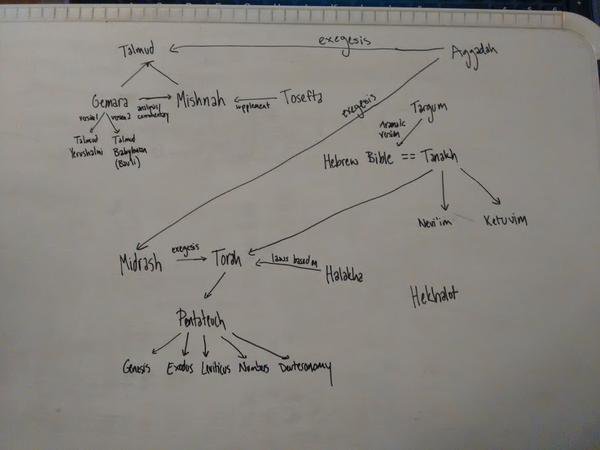 Talmud
exegesis
Aggadah
Gemara
analysis/
commentary
Mishnah
supplement
Tosefta
version 2
Talmud
Yerushalmi
Talmud
(Bavli)
exegesis
Targum
Aramaic
version
Hebrew Bible == Tanakh
Nevi'im
Ketuvim
Midrash
exegesis
Torah
laws based on
Halakha
Hekhalot
Pentateuch
Genesis
Exodus
Leviticus
Numbers
Deuteronomy